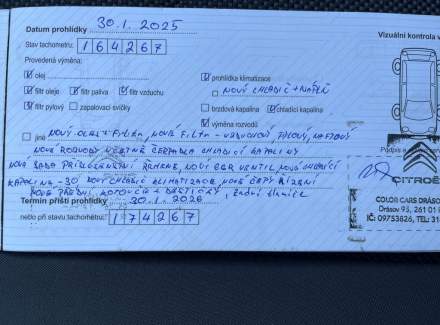 Datum prohlídky 30.1.2025
Vizuální kontrola v
Stav tachometru: 164267
Provedená výměna:
olej
prohlídka klimatizace
filtr oleje filtr paliva filtr vzduchu
NOVÝ CHLADIČ + NÁPLŇ
filtr pylový zapalovací svíčky
brzdová kapalina chladicí kapalina
výměna rozvodů
jiné NOVÝ OLEJ + FILTR, NOVÉ FILTRY - VZDUCHOVÝ, PYLOVÝ, NAFTOVÝ
NOVÉ ROZVODY VČETNĚ ČERPADLA CHLADÍCÍ KAPALINY
NOVÁ SADA PŘÍSLUŠENSTVÍ ŘEMENE, NOVÝ EGR VENTIL, NOVÁ CHLADÍCÍ
KAPALINA -30 NOVÝ CHLADIČ KLIMATIZACE, NOVÉ ČEPY ŘÍZENÍ
NOVÉ PŘEDNÍ KOTOUČE A DESTIČKY, zadní
Termín příští prohlídky 30.1.2026
nebo při stavu tachometru: 174267
Podpis a
CITROË
COLOR CARS DRÁSO
Drásov 95, 261 01
IČ: 09753826, TEL: 31